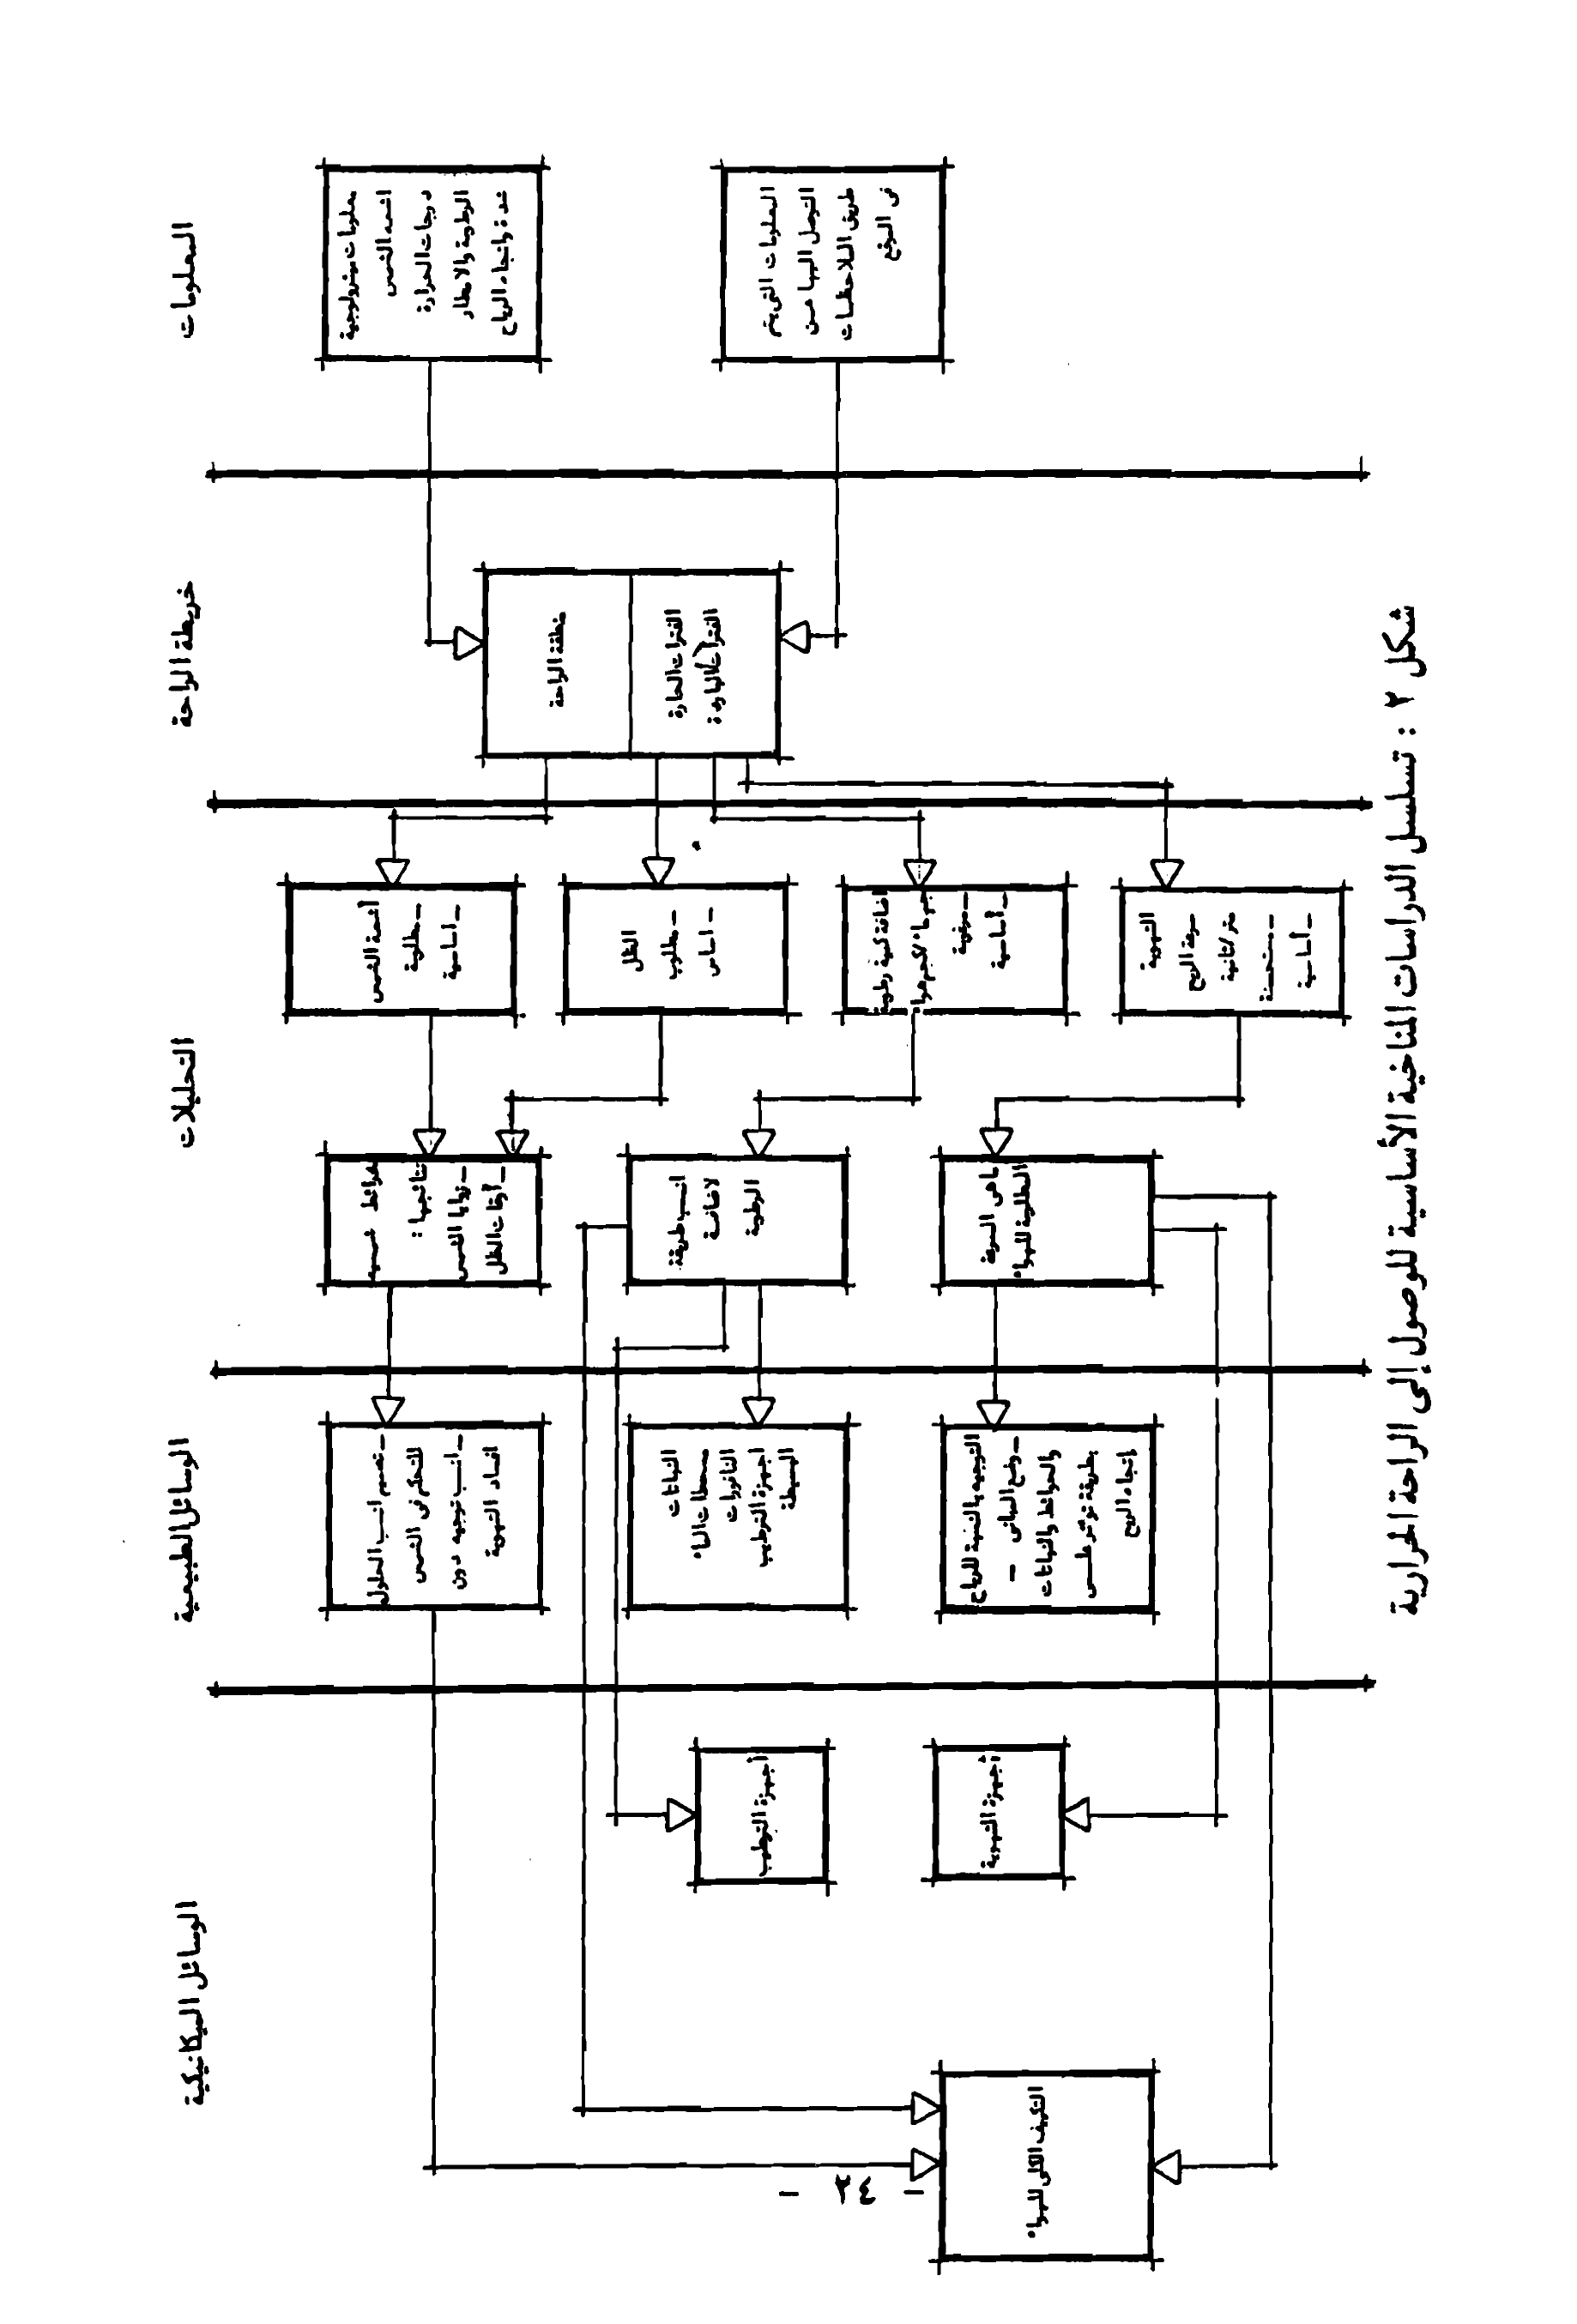 المعلومات
معلومات ميترولوجية
اشعه الشمس
درجات الحرارة
الرطوبة والامطار
شدة واتجاه الرياح
المعلومات التى يتم
التوصل اليها عن
طريق الملاحظات
فى الموقع
خريطة الراحة
منطقة الراحة
الفترات الحارة
الفترات الباردة
التحليلات
أشعة الشمس
ـ مطلوبة
ـ أساسية
الظل
ـ مطلوب
ـ اساس
اضافة كمية رطوبة
جم ماء/كجم هواء
ـ مرغوبة
ـ أساسية
التهوية
سرعة الريح
متر/ثانية
ـ مستحسنة
ـ أساسية
خرائط شمسيه
نتائجها :
ـ زوايا الشمس
ـ أوقات الظل
انسب طريقة
لاضافة
الرطوبة
ما هى السرعة
المطلوبة للهواء
الوسائل الطبيعية
ـ تصميم انسب الحلول
للتحكم فى الشمس
ـ انسب توجيه دون
افساد التهوية
النباتات
مسطحات الماء
النافورات
اجهزة الترطيب
البسيطة
التوجيه بالنسبة للرياح
ـ وضع المبانى ـ
والحوائط والنباتات
بطريقة تؤثر على
إتجاه الريح
الوسائل الميكانيكية
أجهزة الترطيب
أجهزة التهوية
التكييف الكلى للهواء
شكل ٢ : تسلسل الدراسات المناخية الأساسية للوصول إلى الراحة الحرارية
- ٢٤ -